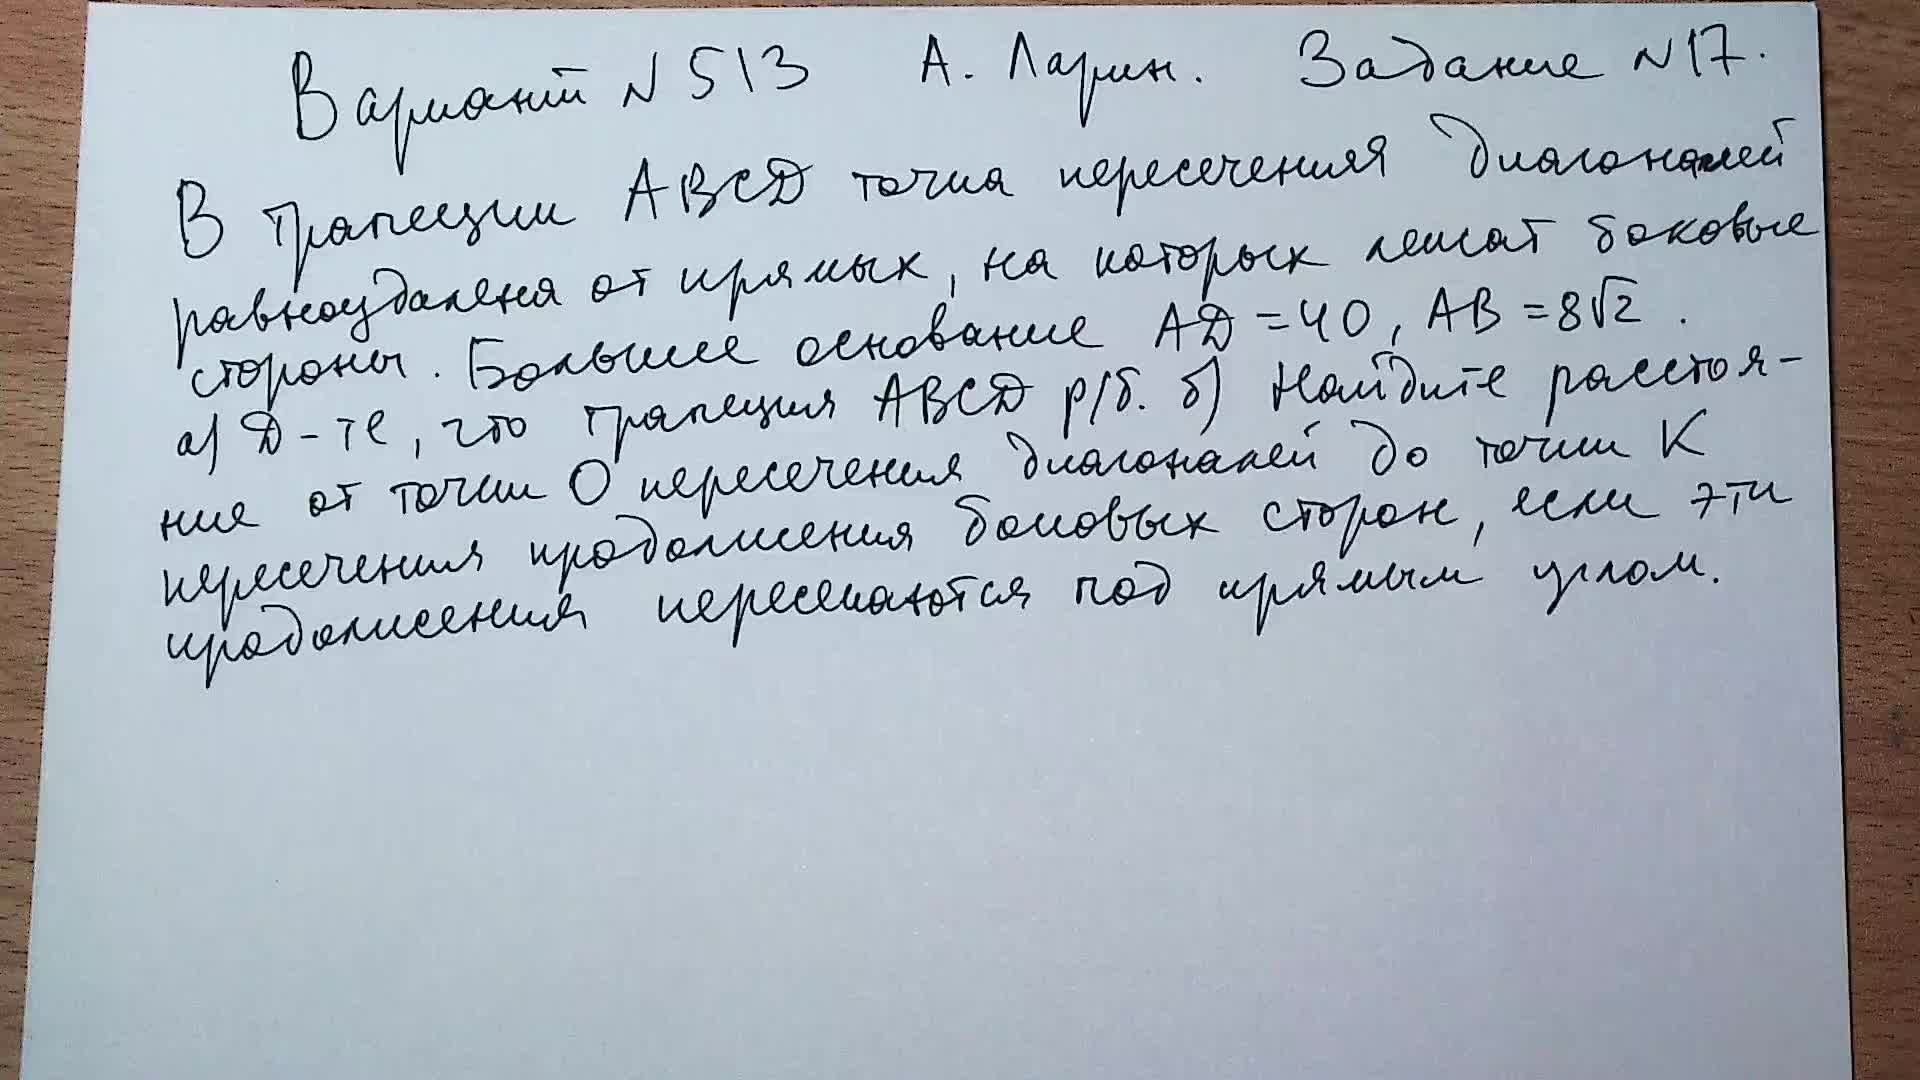 Вариант №513 А. Ларин. Задание №17.
В трапеции ABCD точка пересечения диагоналей
равноудалена от прямых, на которых лежат боковые
стороны. Большее основание AD = 40, AB = 8√2.
а) Д-те, что трапеция ABCD р/б. б) Найдите расстоя-
ние от точки O пересечения диагоналей до точки K
пересечения продолжения боковых сторон, если эти
продолжения пересекаются под прямым углом.